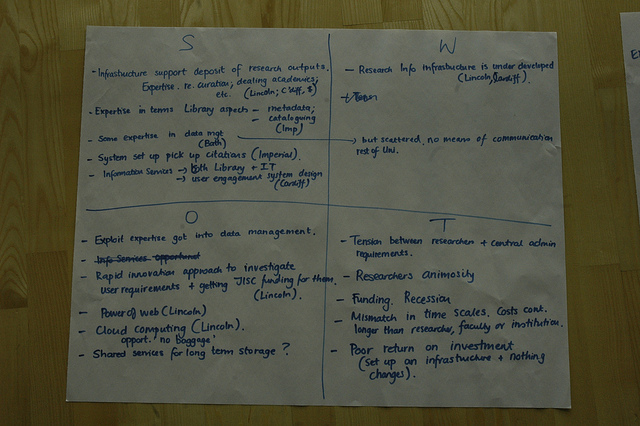 S
- Infrastructure support deposit of research outputs.
Expertise re. curation; dealing academics;
etc. (Lincoln; C'diff,
- Expertise in terms Library aspects - metadata;
- cataloguing
(Imp)
- Some expertise in data mgt
(Bath)
- System set up pick up citations (Imperial).
- Information Services → both Library + IT
→ user engagement system design
(Cardiff)
W
- Research Info infrastructure is under developed
(Lincoln, Cardiff).
→ but scattered, no means of communication
rest of Uni.
O
- Exploit expertise got into data management.
- Info Services opportund
- Rapid innovation approach to investigate
user requirements + getting JISC funding for them.
(Lincoln).
- Power of web (Lincoln)
- Cloud computing (Lincoln).
opport. 'no baggage'
- Shared services for long term storage ?
T
- Tension between researchers + central admin
requirements.
- Researchers animosity
- Funding. Recession
- Mismatch in time scales. Costs cont.
longer than researcher, faculty or institution.
- Poor return on investment
(set up an infrastructure + nothing
changes).